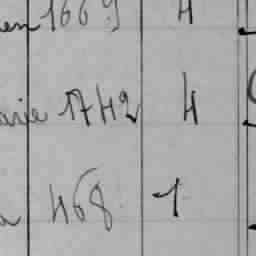 en 1669 4
arie 1742 4
a 468 1